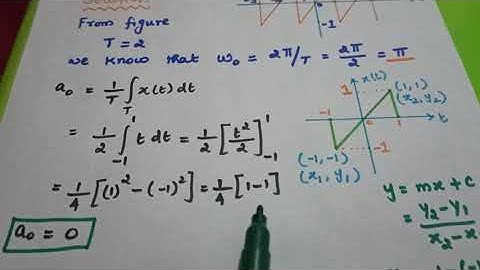 From figure
T = 2
we know that ω₀ = 2π/T = 2π/2 = π
a₀ = 1/T ∫_T x(t) dt
= 1/2 ∫_{-1}^{1} t dt = 1/2 [t²/2]_{-1}^{1}
= 1/4 [(1)² − (−1)²] = 1/4 [1−1]
a₀ = 0
-1
x(t)
1
(1, 1)
(x₂, y₂)
-1
0
1
t
(-1, -1)
-1
(x₁, y₁)
y = mx + c
= y₂ − y₁